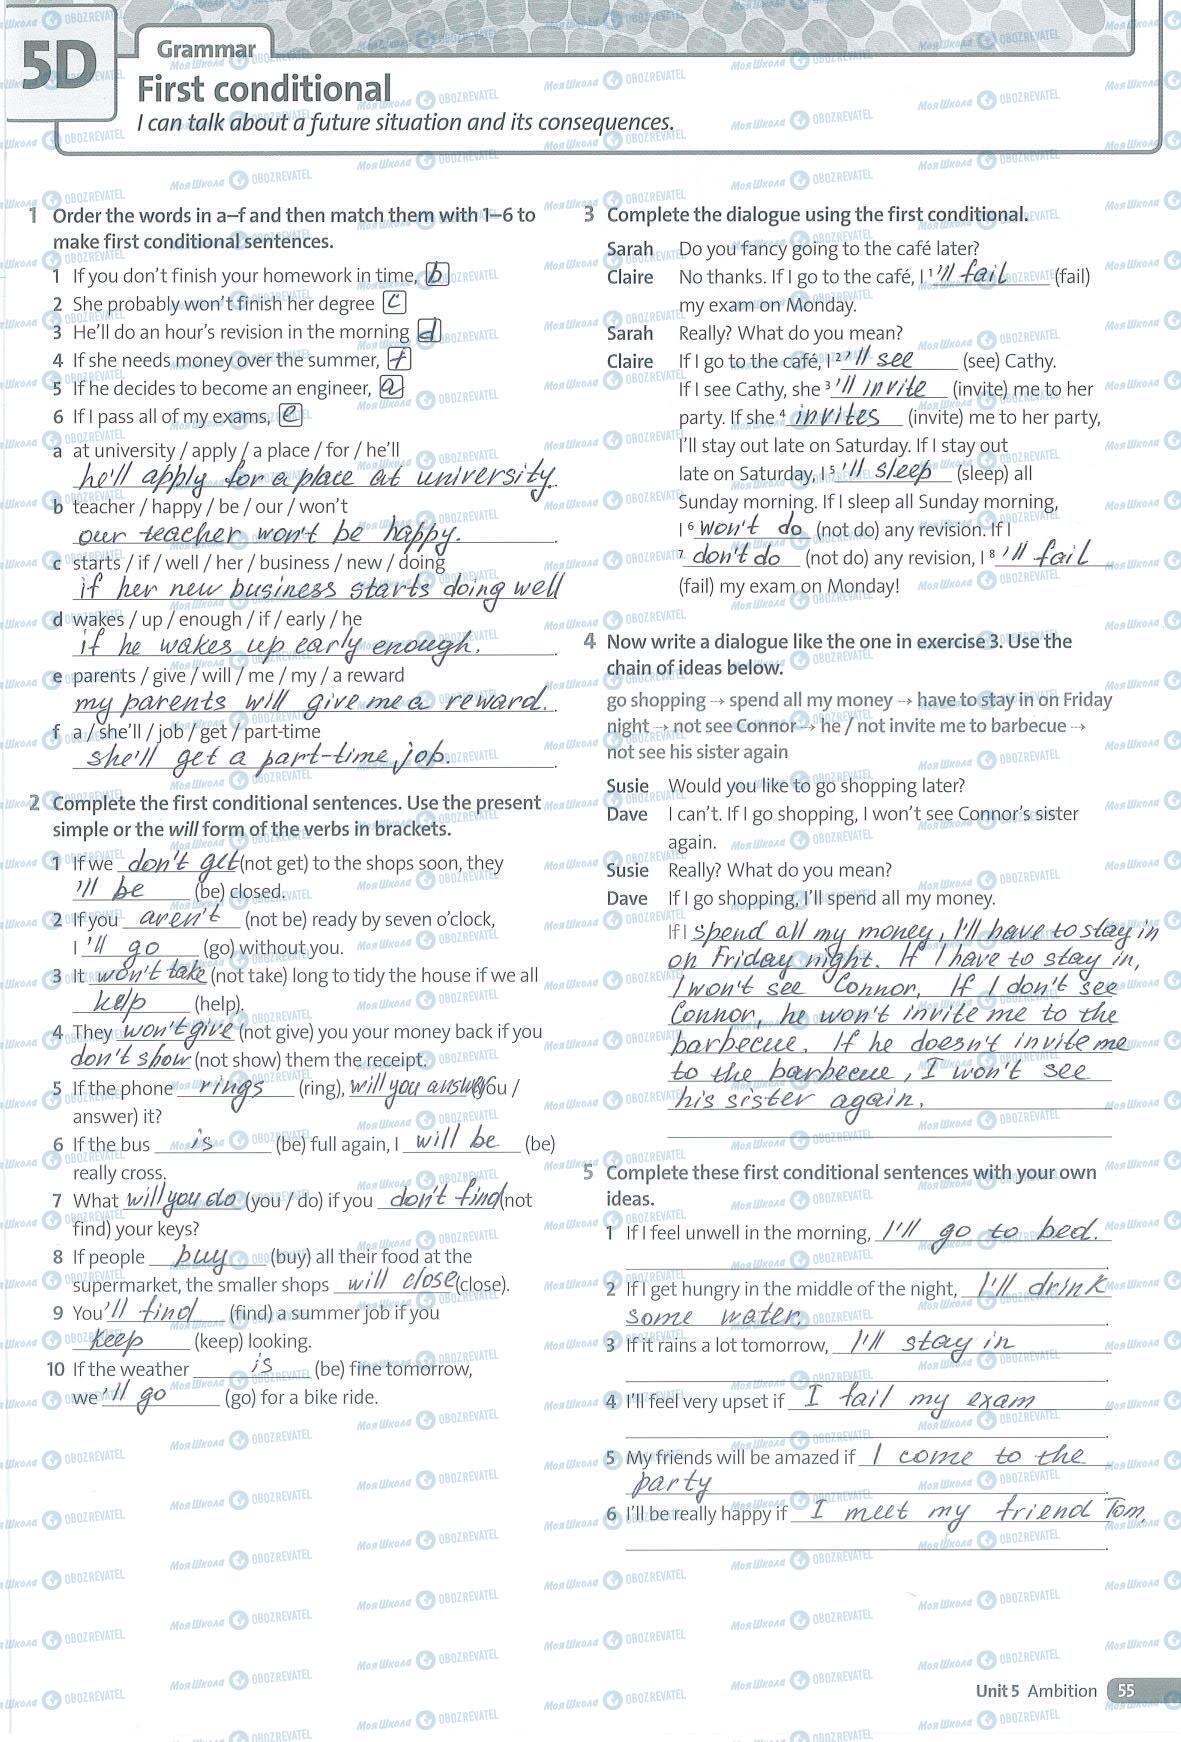 5D
Grammar
First conditional
I can talk about a future situation and its consequences.
1 Order the words in a–f and then match them with 1–6 to
make first conditional sentences.
1 If you don't finish your homework in time, b
2 She probably won't finish her degree c
3 He'll do an hour's revision in the morning d
4 If she needs money over the summer, f
5 If he decides to become an engineer, a
6 If I pass all of my exams, e
a at university / apply / a place / for / he'll
he'll apply for a place at university.
b teacher / happy / be / our / won't
our teacher won't be happy.
c starts / if / well / her / business / new / doing
if her new business starts doing well
d wakes / up / enough / if / early / he
if he wakes up early enough.
e parents / give / will / me / my / a reward
my parents will give me a reward.
f a / she'll / job / get / part-time
she'll get a part-time job.
2 Complete the first conditional sentences. Use the present
simple or the will form of the verbs in brackets.
1 If we don't get (not get) to the shops soon, they
'll be (be) closed.
2 If you aren't (not be) ready by seven o'clock,
I 'll go (go) without you.
3 It won't take (not take) long to tidy the house if we all
help (help).
4 They won't give (not give) you your money back if you
don't show (not show) them the receipt.
5 If the phone rings (ring), will you answer (you /
answer) it?
6 If the bus is (be) full again, I will be (be)
really cross.
7 What will you do (you / do) if you don't find (not
find) your keys?
8 If people buy (buy) all their food at the
supermarket, the smaller shops will close (close).
9 You 'll find (find) a summer job if you
keep (keep) looking.
10 If the weather is (be) fine tomorrow,
we 'll go (go) for a bike ride.
3 Complete the dialogue using the first conditional.
Sarah Do you fancy going to the café later?
Claire No thanks. If I go to the café, I 1 'll fail (fail)
my exam on Monday.
Sarah Really? What do you mean?
Claire If I go to the café, I 2 'll see (see) Cathy.
If I see Cathy, she 3 'll invite (invite) me to her
party. If she 4 invites (invite) me to her party,
I'll stay out late on Saturday. If I stay out
late on Saturday, I 5 'll sleep (sleep) all
Sunday morning. If I sleep all Sunday morning,
I 6 won't do (not do) any revision. If I
7 don't do (not do) any revision, I 8 'll fail
(fail) my exam on Monday!
4 Now write a dialogue like the one in exercise 3. Use the
chain of ideas below.
go shopping → spend all my money → have to stay in on Friday
night → not see Connor → he / not invite me to barbecue →
not see his sister again
Susie Would you like to go shopping later?
Dave I can't. If I go shopping, I won't see Connor's sister
again.
Susie Really? What do you mean?
Dave If I go shopping, I'll spend all my money.
If I spend all my money, I'll have to stay in
on Friday night. If I have to stay in,
I won't see Connor, If I don't see
Connor, he won't invite me to the
barbecue. If he doesn't invite me
to the barbecue, I won't see
his sister again.
5 Complete these first conditional sentences with your own
ideas.
1 If I feel unwell in the morning, I'll go to bed.
2 If I get hungry in the middle of the night, I'll drink
some water.
3 If it rains a lot tomorrow, I'll stay in
4 I'll feel very upset if I fail my exam
5 My friends will be amazed if I come to the
party
6 I'll be really happy if I meet my friend Tom.
Unit 5 Ambition 55
МояШкола OBOZREVATEL